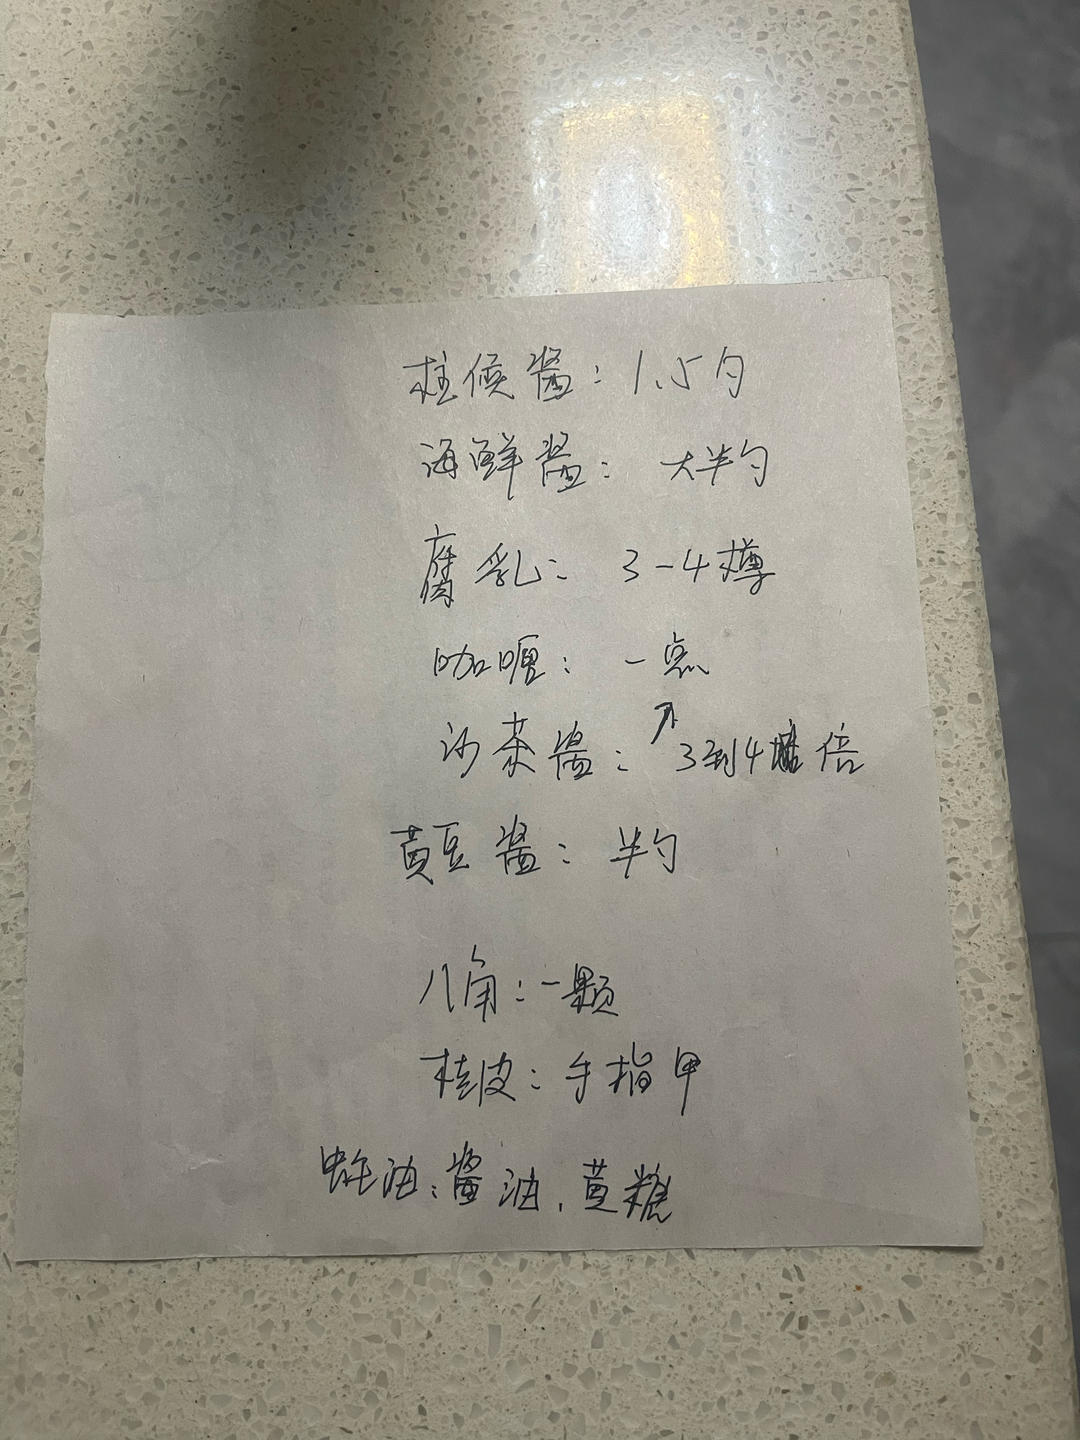 柱候酱：1.5勺
海鲜酱：大半勺
腐乳：3-4樽
咖喱：一点
沙茶酱：↗3到4 倍
黄豆酱：半勺
八角：一颗
桂皮：手指甲
蚝油：酱油，黄糖